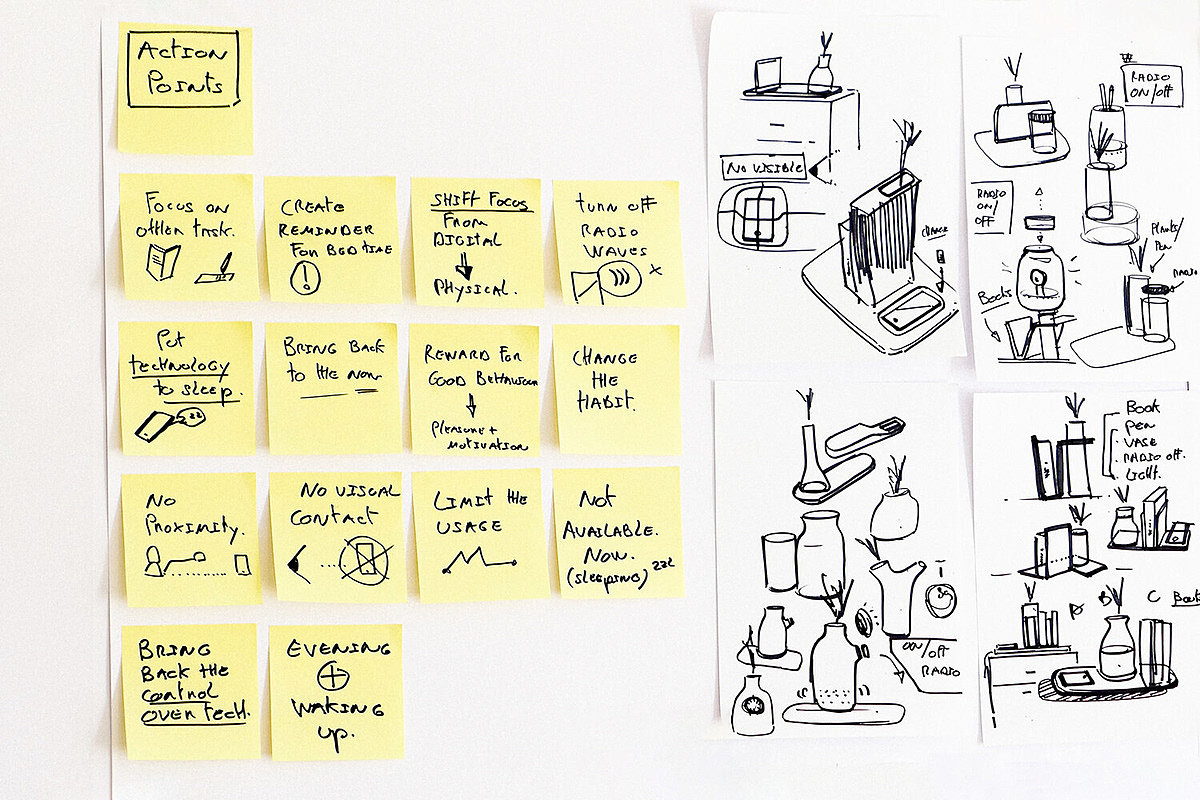 Action
Points
Focus on
other task.
CREATE
REMINDER
FOR BEDTIME
SHIFT FOCUS
FROM
DIGITAL
PHYSICAL.
TURN OFF
RADIO
WAVES
x
Put
technology
to sleep.
zz
BRING BACK
to the now
REWARD FOR
GOOD BEHAVIOUR
PLEASURE +
MOTIVATION
CHANGE
THE
HABIT.
NO
PROXIMITY.
NO VISUAL
CONTACT
LIMIT the
USAGE
Not
AVAILABLE.
NOW.
(sleeping) zzz
BRING
BACK the
control
OVER tech.
EVENING
+
WAKING
up.
NO VISIBLE
CHARGE
RADIO
ON/OFF
RADIO
ON/
OFF
Plants/
Pen
RADIO
Books
ON/OFF
RADIO
Book
PEN
VASE
RADIO off.
Light.
A B C Book